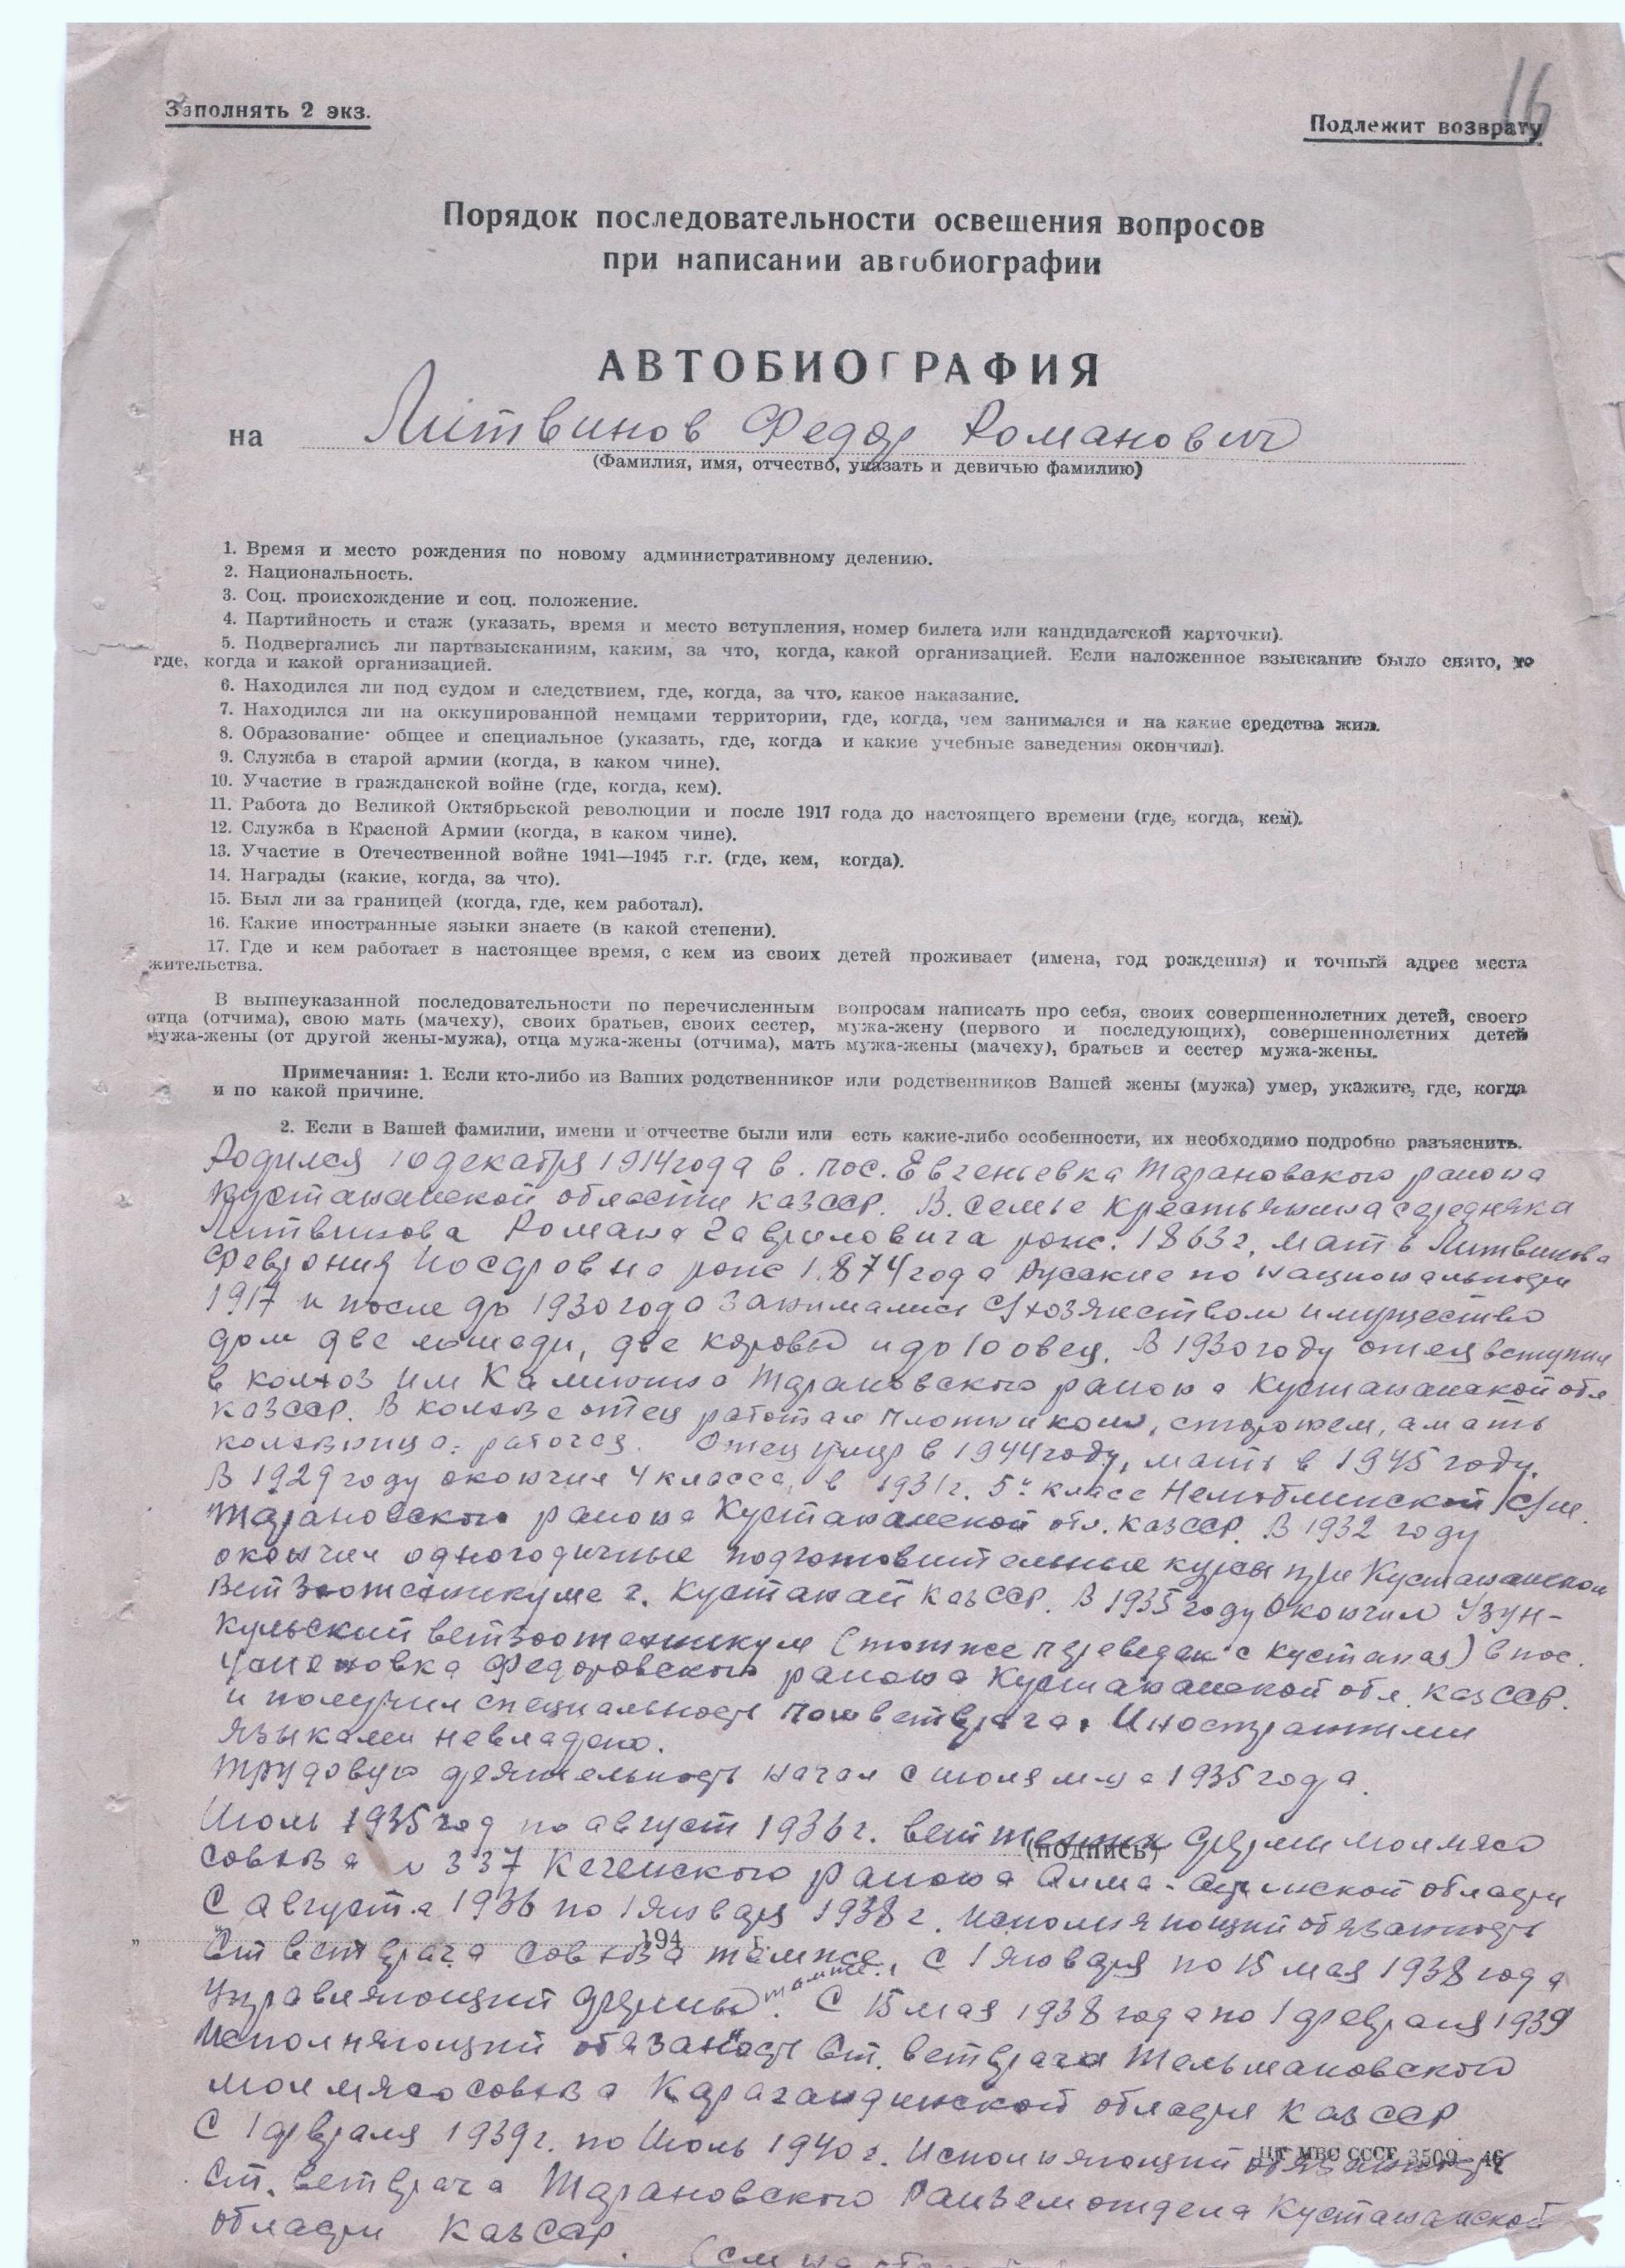 16
Заполнять 2 экз.
Подлежит возврату
Порядок последовательности освещения вопросов
при написании автобиографии
АВТОБИОГРАФИЯ
на Литвинов Федор Романович
(Фамилия, имя, отчество, указать и девичью фамилию)
1. Время и место рождения по новому административному делению.
2. Национальность.
3. Соц. происхождение и соц. положение.
4. Партийность и стаж (указать, время и место вступления, номер билета или кандидатской карточки).
5. Подвергались ли партвзысканиям, каким, за что, когда, какой организацией. Если наложенное взыскание было снято, то
где, когда и какой организацией.
6. Находился ли под судом и следствием, где, когда, за что, какое наказание.
7. Находился ли на оккупированной немцами территории, где, когда, чем занимался и на какие средства жил.
8. Образование общее и специальное (указать, где, когда и какие учебные заведения окончил).
9. Служба в старой армии (когда, в каком чине).
10. Участие в гражданской войне (где, когда, кем).
11. Работа до Великой Октябрьской революции и после 1917 года до настоящего времени (где, когда, кем).
12. Служба в Красной Армии (когда, в каком чине).
13. Участие в Отечественной войне 1941—1945 г.г. (где, кем, когда).
14. Награды (какие, когда, за что).
15. Был ли за границей (когда, где, кем работал).
16. Какие иностранные языки знаете (в какой степени).
17. Где и кем работает в настоящее время, с кем из своих детей проживает (имена, год рождения) и точный адрес места
жительства.
В вышеуказанной последовательности по перечисленным вопросам написать про себя, своих совершеннолетних детей, своего
отца (отчима), свою мать (мачеху), своих братьев, своих сестер, мужа-жену (первого и последующих), совершеннолетних детей
мужа-жены (от другой жены-мужа), отца мужа-жены (отчима), мать мужа-жены (мачеху), братьев и сестер мужа-жены.
Примечания: 1. Если кто-либо из Ваших родственников или родственников Вашей жены (мужа) умер, укажите, где, когда
и по какой причине.
2. Если в Вашей фамилии, имени и отчестве были или есть какие-либо особенности, их необходимо подробно разъяснить.
Родился 10 декабря 1914 года в. пос. Евгеньевка Тарановского района
Кустанайской области КазССР. В. семье крестьянина середняка
Литвинова Романа Гавриловича рожс. 1863 г, мать Литвинова
Феврония рожс 1.874 года Русские по национальности
1917 и после до 1930 года занимались с/хозяйством имущество
дом две лошади, две коровы и до 10 овец. В 1930 году отец вступил
в колхоз им Калинина Тарановского района Кустанайской обл
КазССР. В колхозе отец работал плотником, сторожем, а мать
колхозница: рабочая. Отец умер в 1944 году, мать в 1945 году.
В 1929 году окончил 4 класса, в 1931 г. 5й класс с/ш.
Тарановского района Кустанайской обл. КазССР. В 1932 году
окончил одногодичные подготовительные курсы при Кустанайском
Ветзоотехникуме г. Кустанай КазССР. В 1935 году Окончил Узун-
Кульский ветзоотехникум (тотже переведен с Кустаная) в пос.
Федоровского района Кустанайской обл. КазССР.
и получил специальность помветврача. Иностранными
языками невладею.
Трудовую деятельность начал с июля м-ца 1935 года.
Июль 1935 год по август 1936 г. веттехник фермы молмясо
(подпись)
совхоза № 337 Кегенского района Алма-Атинской области
С августа 1936 по 1 января 1938 г. исполняющий обязанность
„ 194 г.
Ст ветврача совхоза тамже, С 1 января по 15 мая 1938 года
Управляющий фермы тамже. С 15 мая 1938 года по 1 февраля 1939
Исполняющий обязаность Ст. ветврача Тельмановского
молмясосовхоза Карагандинской области КазССР
С 1 февраля 1939 г. по Июль 1940 г. Исполняющий обязанность
ЦТ МВС СССР 3509—46
Ст. ветврача Тарановского Райземотдела Кустанайской
области КазССР.
(см на